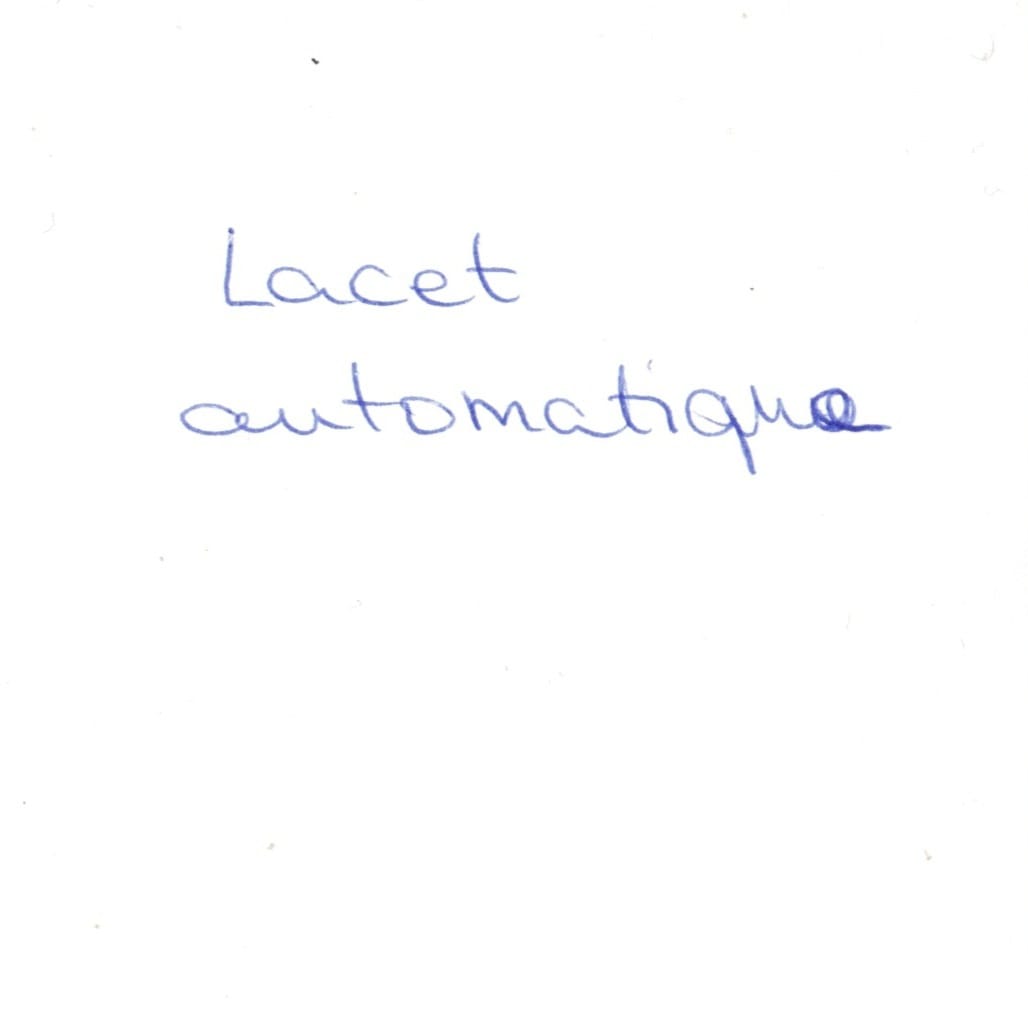 Lacet
automatique